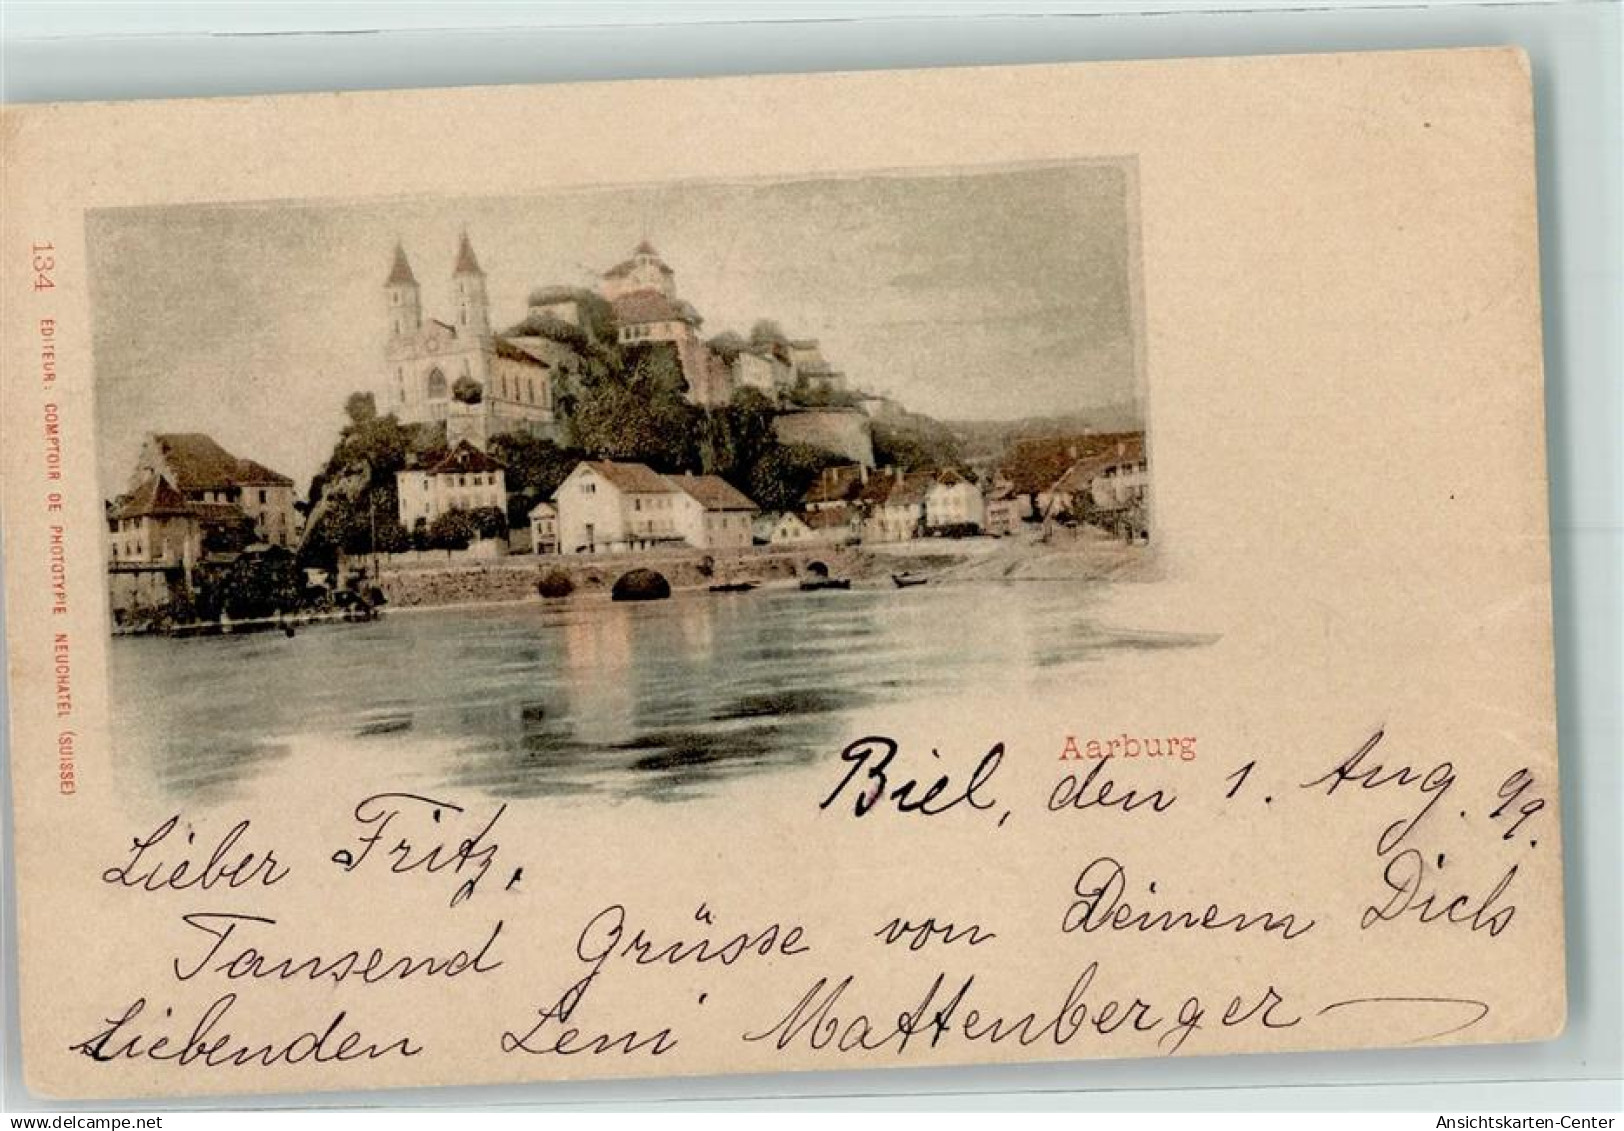 134 EDITEUR: COMPTOIR DE PHOTOTYPIE NEUCHATEL (SUISSE)
Aarburg
Biel, den 1. Aug. 99.
Lieber Fritz,
Tausend Grüsse von Deinem Dich
Liebenden Leni Mattenberger
delcampe.net
Ansichtskarten-Center